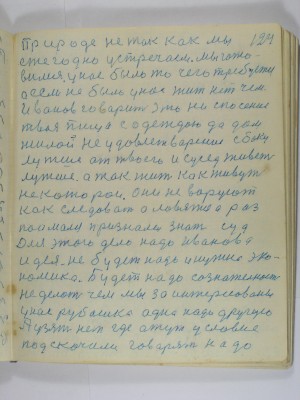 природе не так как мы 124
ежегодно устречаем. мы гото-
вимся, у нас было то чего требуем
а если не было у нас жит нет чем
Иванов говарит Это ни спасение
твая пища с одеждою да дом
жилой не удовлетварение сбоку
лутше от твоего и сусед живет
лутше. а так жит как живут
некаторои. Они не варуют
как следоват а ловятся раз
поомали признали знат суд
Для этого дело надо Иванова
идея. не будет надо и нужно эко-
номика. Будет надо сознательност
неделают чем мы заинтересованы
у нас рубашка адна надо другую
Азят нет где а тут условие
подскочили говарят надо